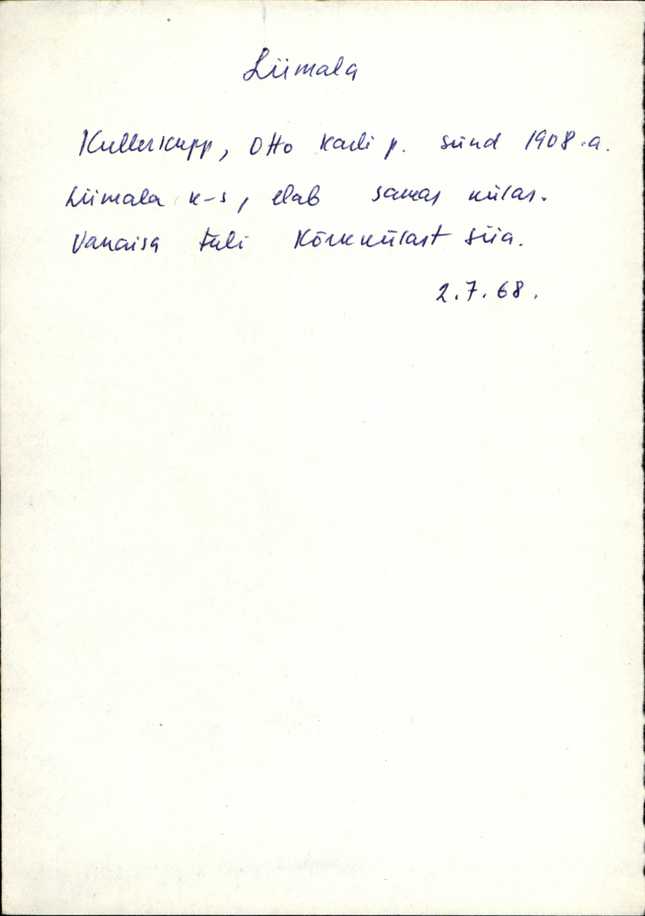 Liimala
Kullerkupp, Otto Karli p. sünd 1908.a.
Liimala k-s, elab samas külas.
Vanaisa tuli Kõrkkülast siia.
2.7.68.